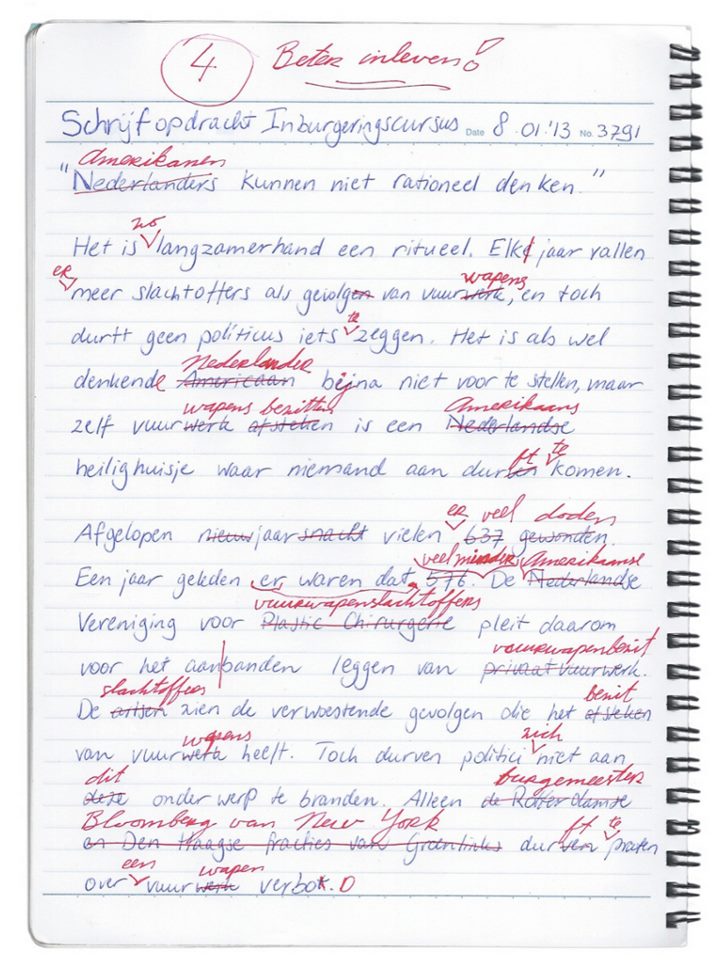 4 Beter inleven!
Schrijfopdracht Inburgeringscursus Date 8.01.'13 No. 3791
Amerikanen
"Nederlanders kunnen niet rationeel denken."
zo
Het is langzamerhand een ritueel. Elke jaar vallen
er wapens
meer slachtoffers als gevolgen van vuurwerk, en toch
te
durft geen politicus iets zeggen. Het is als wel
Nederlander
denkende Americaan bijna niet voor te stellen, maar
wapens bezitten Amerikaans
zelf vuurwerk afsteken is een Nederlandse
ft te
heilighuisje waar niemand aan durven komen.
er veel doden
Afgelopen nieuwjaarsnacht vielen 637 gewonden.
veel minder Amerikaanse
Een jaar geleden er waren dat 576. De Nederlandse
vuurwapenslachtoffers
Vereniging voor Plastic Chirurgerie pleit daarom
vuurwapenbezit
voor het aanbanden leggen van privaat vuurwerk.
slachtoffers bezit
De artsen zien de verwoestende gevolgen die het afsteken
wapens zich
van vuurwerk heeft. Toch durven politici niet aan
dit burgemeester
deze onderwerp te branden. Alleen de Rotterdamse
Bloomberg van New York ft te
en Den Haagse fracties van Greenlinks durven praten
een wapen
over vuurwerk verbot. D